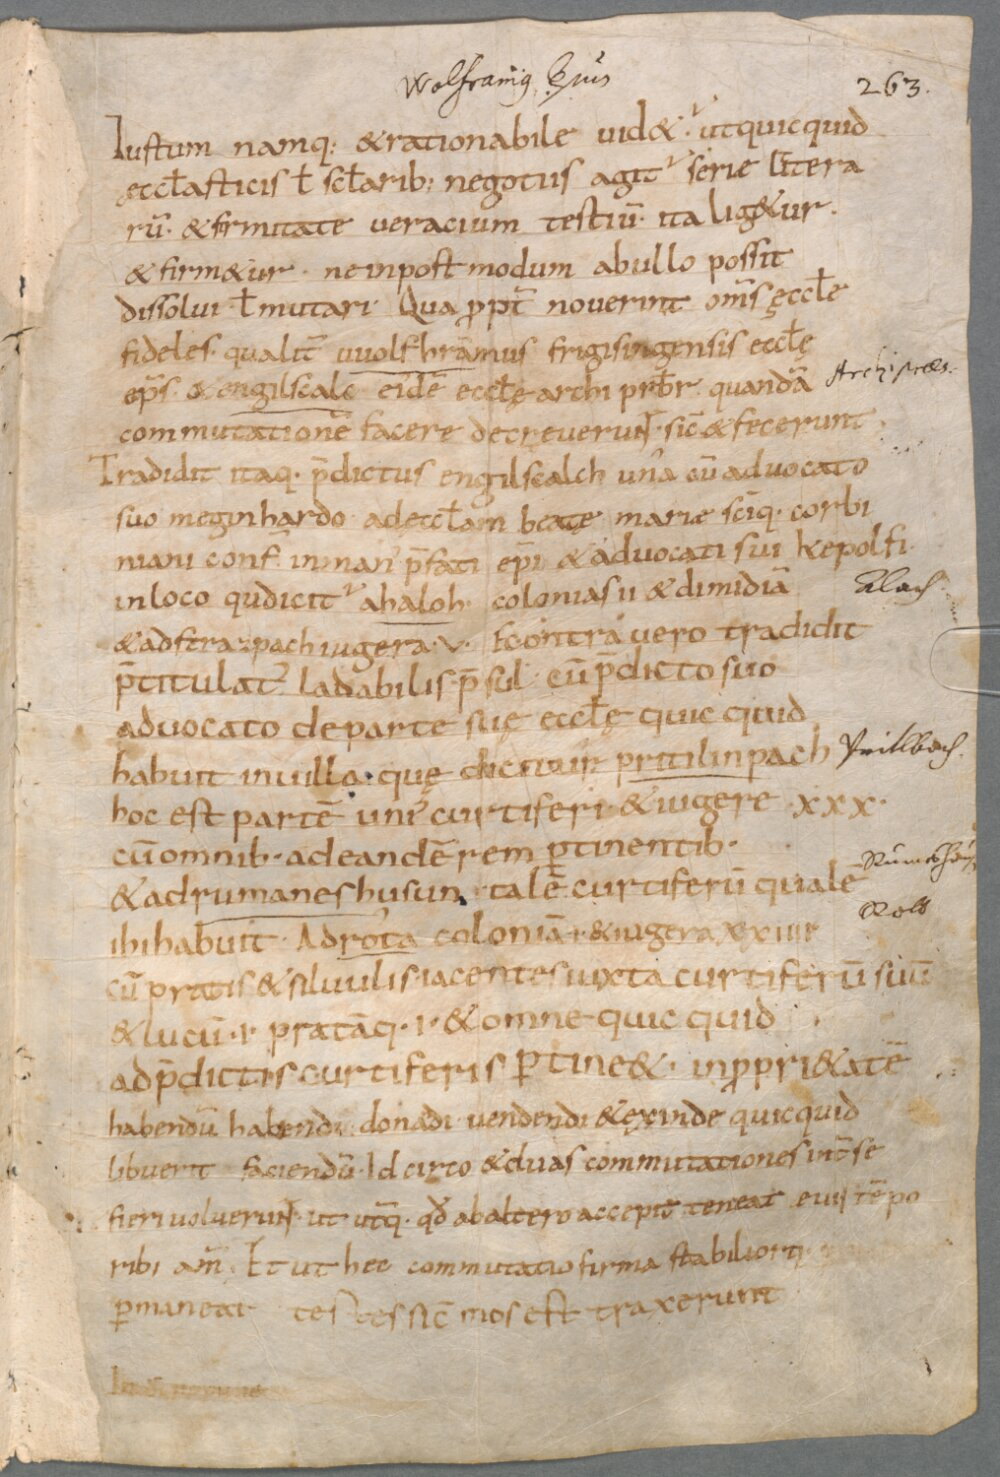 Wolframig. Eṕus
263.
Iustum namq: &rationabile uid&ur utquicquid
ęccłasticis ł scłarib: negotiis agit᷑ serie littera
rū. &firmitate veracium testiū. ita lig&ur.
&firm&ur. neinpost modum abullo possit
dissolui ł mutari. Qua ppt̄ noverint om̄s ęccłe
fideles. qualit̄ vvolfhrāmus frigisingensis eccłę
ep̄s. & engilscalc eidē eccłę archi prb̄r quandā
Archipres.
commutationē facere decreverunt. sic̄ & fecerunt.
Tradidit itaq. p̄dictus engilscalch una cū advocato
suo meginhardo adęccłam beatę marie sc̄iq. corbi
niani conf̄. inman᷒ p̄fati ep̄i &advocati sui kepolfi.
inloco qudicit᷑ ahaloh. colonias ii &dimidiā
Alach
&adstrazpach iugera. v. Econtra vero tradidit
p̄titulat᷒ ladabilis p̄sul cū p̄dicto suo
advocato departe suę eccłę quicquid
habuit invilla. quę dicitur pritilinpach
Prittlbach.
hoc est partē uni᷒ curtiferi. &iugere .xxx.
cūomnib. adeandē rem ꝑtinentib.
&adrumaneshusun. talē curtiferū qualē
ibihabuit. Adrota coloniā .i. &iugera xxiiii
Rott
cū pratis &siluulis iacentes iuxta curtiferū suū
&lucū .i. pratāq. .i. &omne quicquid
adp̄dictis curtiferis ꝑtine&. inppri&atē
habendū habendi donādi vendendi &exinde quicquid
libuerit faciendū. Idcirco &duas commutationes int̄ se
fieri voluerunt. ut utq̄. qd̄ abaltero accepit teneat evis tēpo
ribi am̄. Et ut hec commutatio firma stabiliorq.
ꝑmaneat testes sic̄ mos est traxerunt